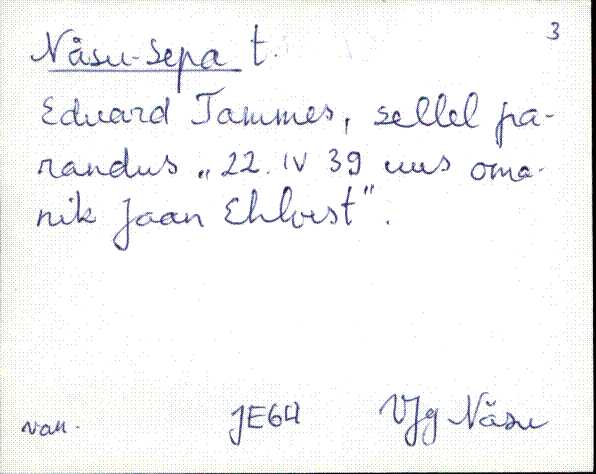 3
Näsu-Sepa t.
Eduard Tammes, sellel pa-
randus „22. IV 39 uus oma-
nik Jaan Ehlvest”.
JE64 Vjg Näsu